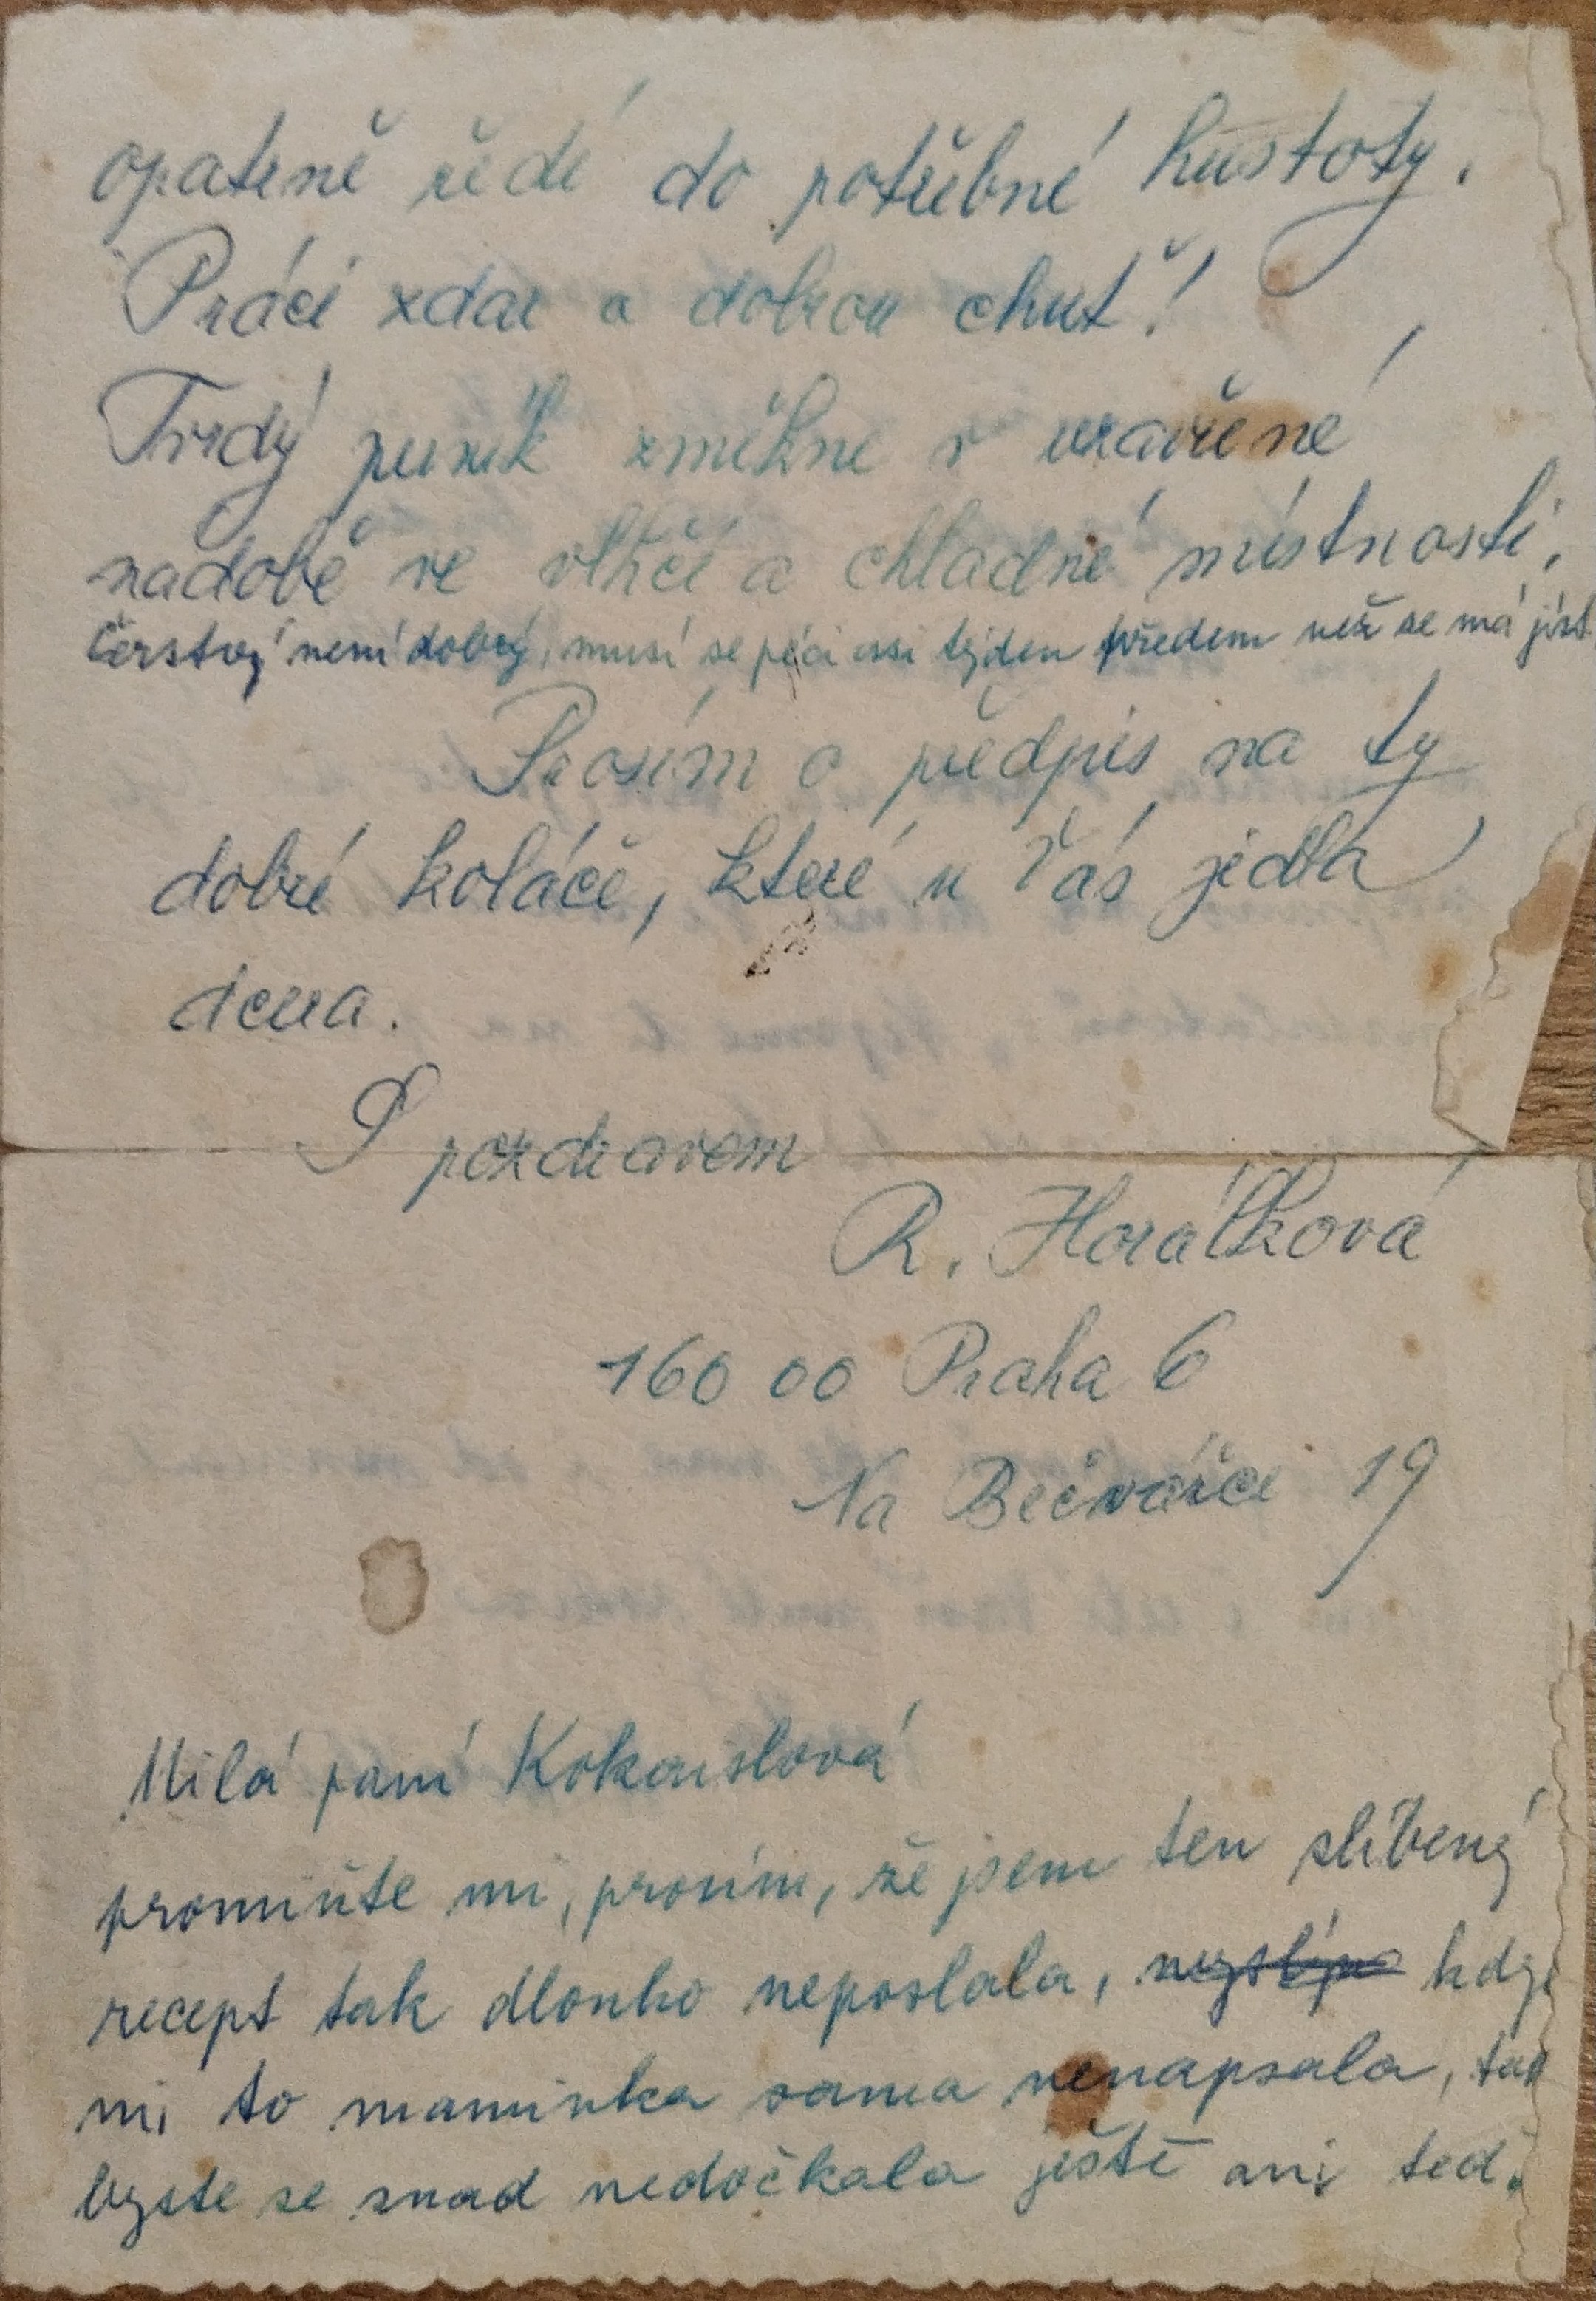 opatrně ředí do potřebné hustoty.
Práci zdar a dobrou chuť!
Tvrdý perník změkne v uzavřené
nádobě ve vlhčí a chladné místnosti,
Čerstvý není dobrý, musí se péci asi týden předem než se má jíst.
Prosím o předpis na ty
dobré koláče, které u Vás jedla
dcera.
S pozdravem
R. Horálková
160 00 Praha 6
Na Bečvářce 19
Milá paní Kokaislová
promiňte mi, prosím, že jsem ten slíbený
recept tak dlouho neposlala, kdyby
mi to maminka sama nenapsala, tak
byste se snad nedočkala ještě ani teď.